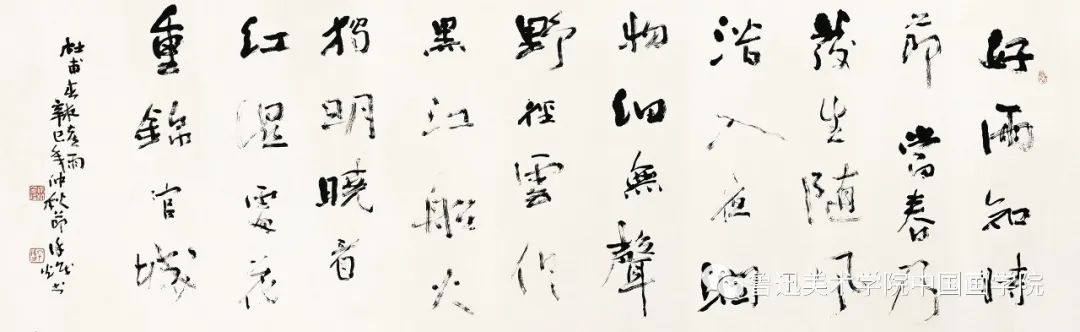 好雨知時
節當春乃
發生随風
潛入夜潤
物細無聲
野徑雲俱
黑江船火
獨明曉看
红濕處花
重錦官城
杜甫春夜喜雨
辛巳年仲秋節書
鲁迅美术学院中国画学院